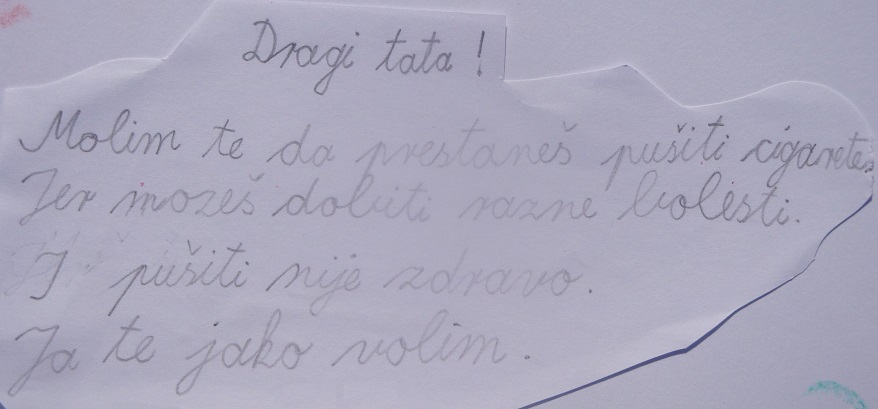 Dragi tata!
Molim te da prestaneš pušiti cigarete.
Jer mozeš dobiti razne bolesti.
I pušiti nije zdravo.
Ja te jako volim.